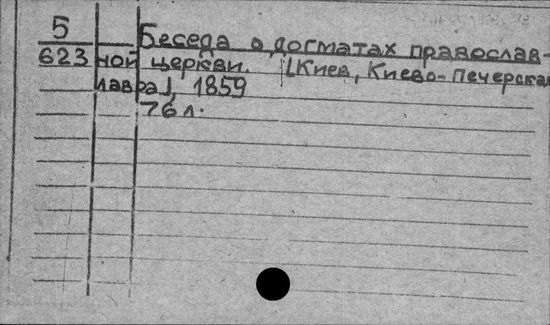 5
Беседа о догматах православ-
623 ной церкви. [Киев, Киево-Печерская
лавра], 1859
76 л.